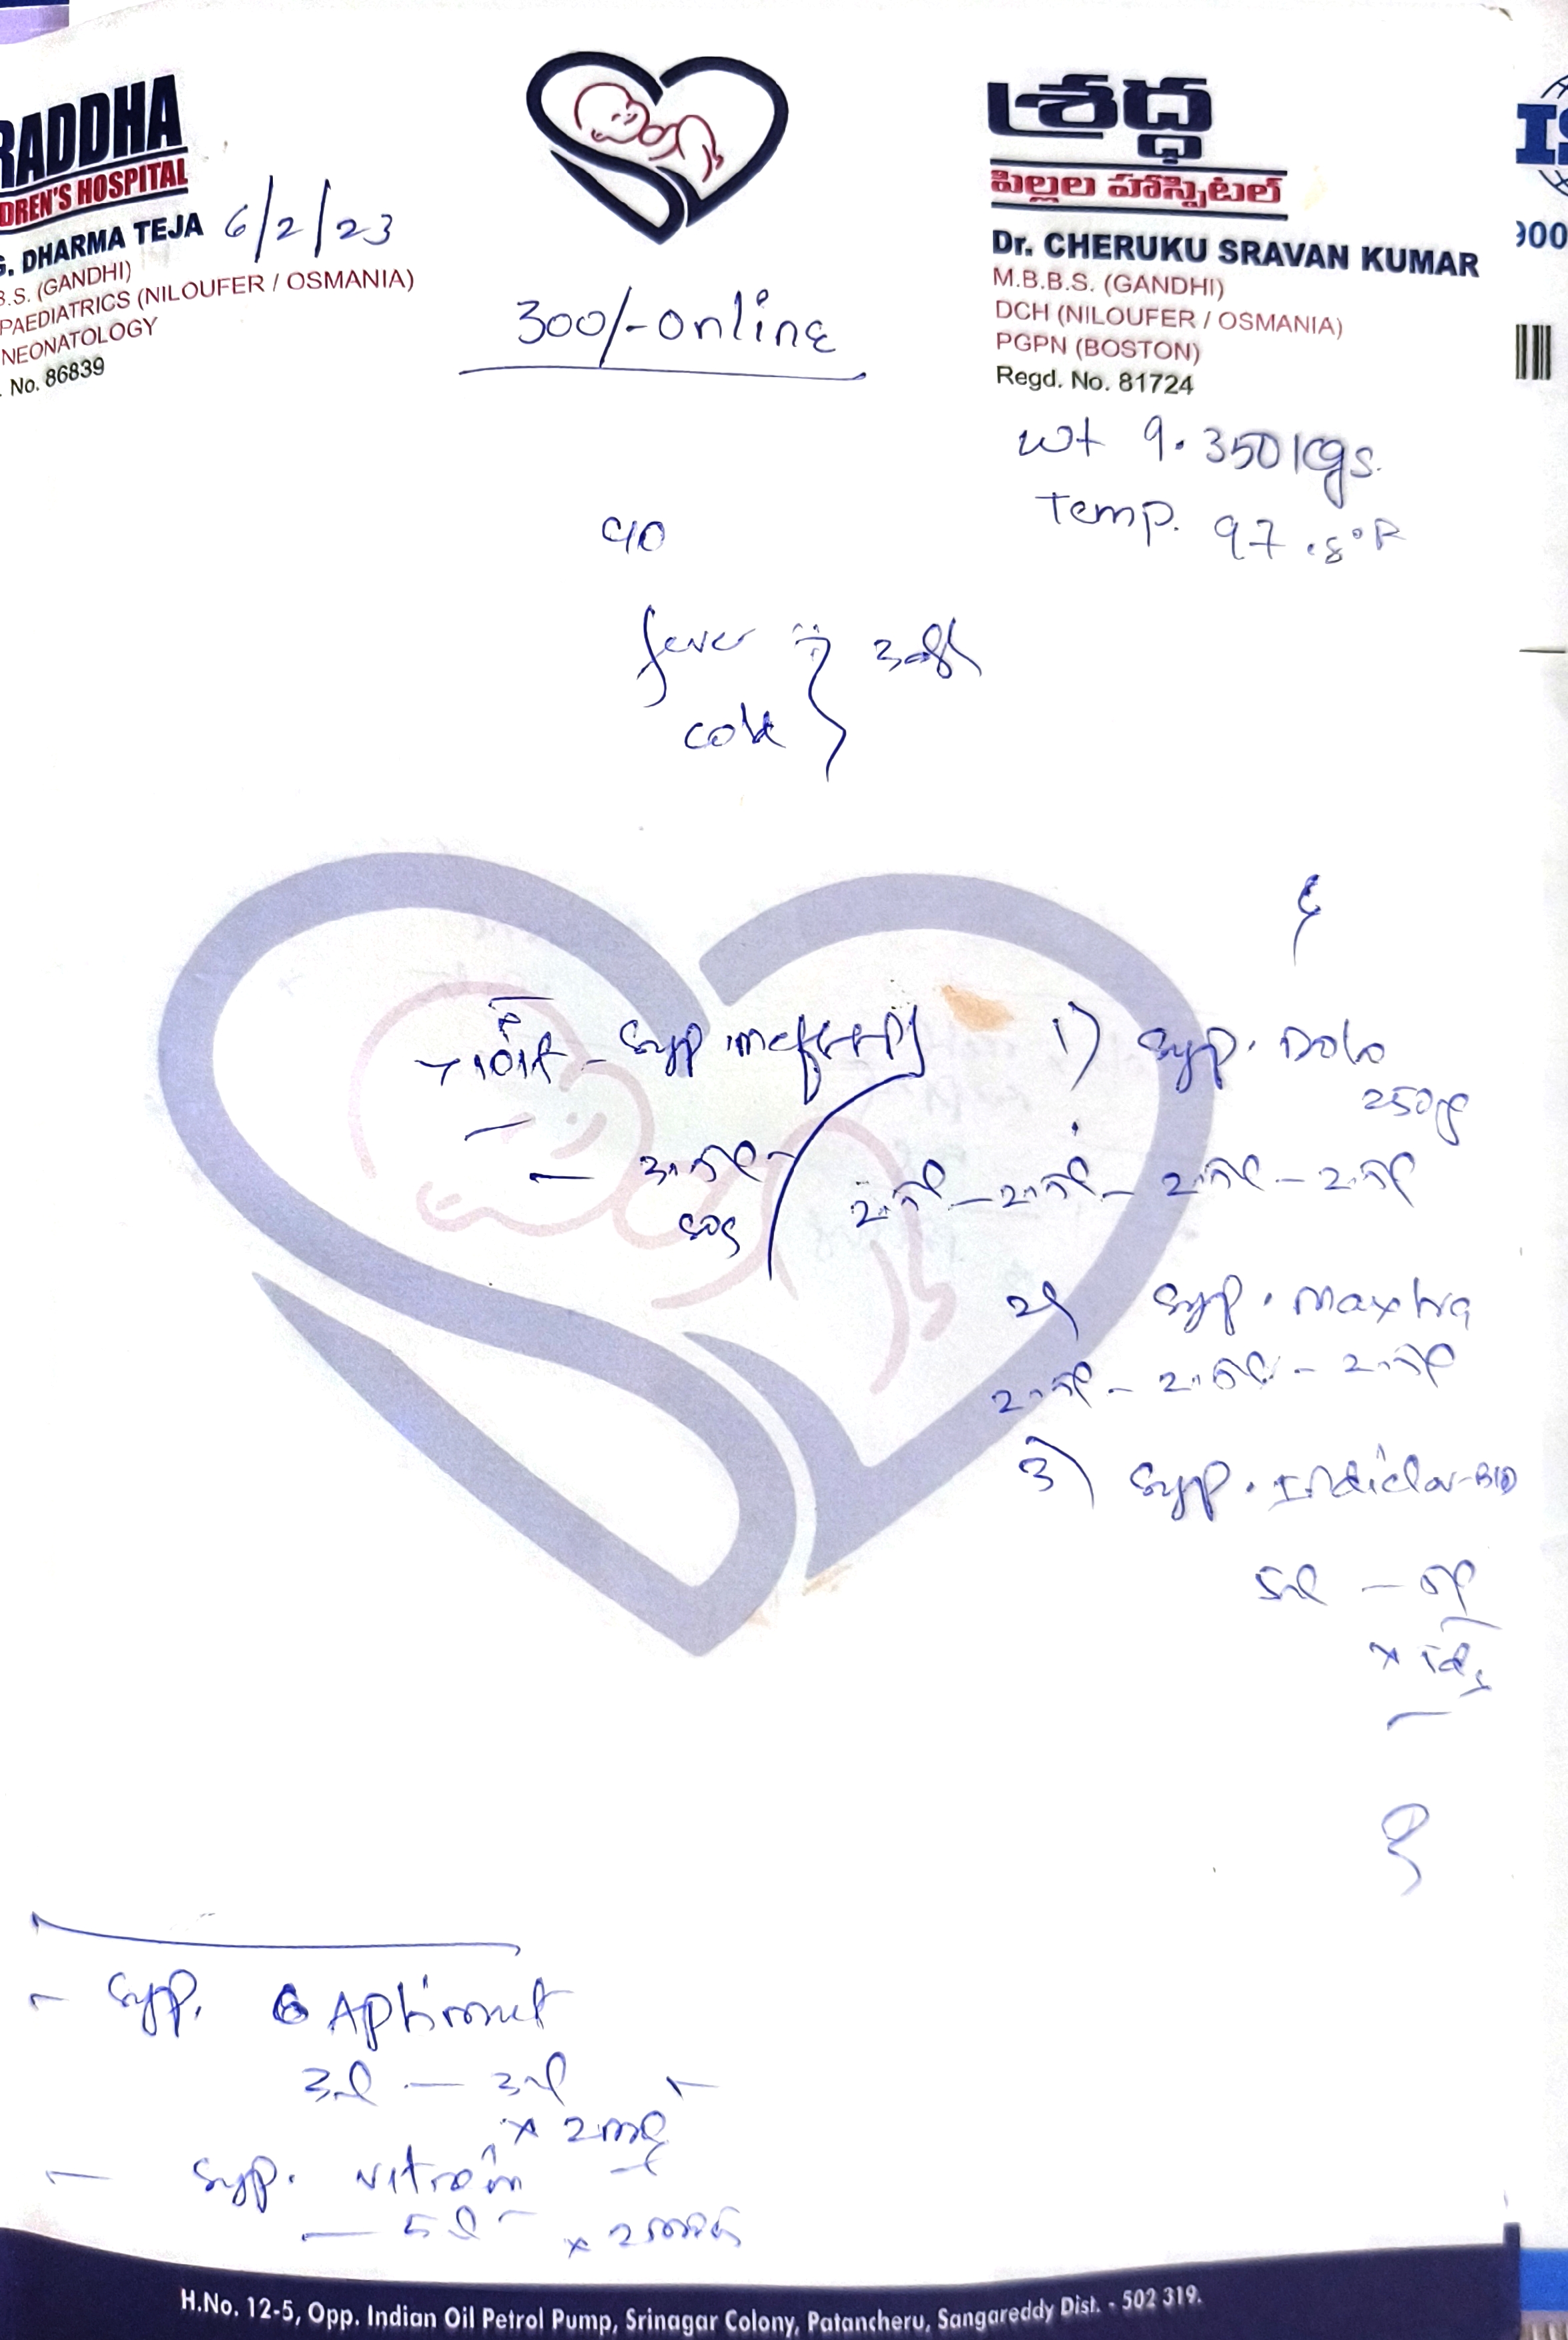 RADDHA
DREN'S HOSPITAL
G. DHARMA TEJA
B.S. (GANDHI)
PAEDIATRICS (NILOUFER / OSMANIA)
NEONATOLOGY
. No. 86839
6/2/23
300/- online
శ్రద్ధ
పిల్లల హాస్పిటల్
Dr. CHERUKU SRAVAN KUMAR
M.B.B.S. (GANDHI)
DCH (NILOUFER / OSMANIA)
PGPN (BOSTON)
Regd. No. 81724
900
wt 9.350 kgs.
Temp. 97.8°F
c/o
fever
cold
- Syp
- 3.5ml
sos
1) Syp. Dolo
250
2.5ml - 2.5ml - 2.5ml - 2.5ml
2) Syp. Maxtra
2.5ml - 2.5ml - 2.5ml
3) Syp. Indiclav-BID
5ml - 5ml
- Syp. Aptimust
3ml - 3ml
x 2
- Syp.
- 5ml x 2
H.No. 12-5, Opp. Indian Oil Petrol Pump, Srinagar Colony, Patancheru, Sangareddy Dist. - 502 319.